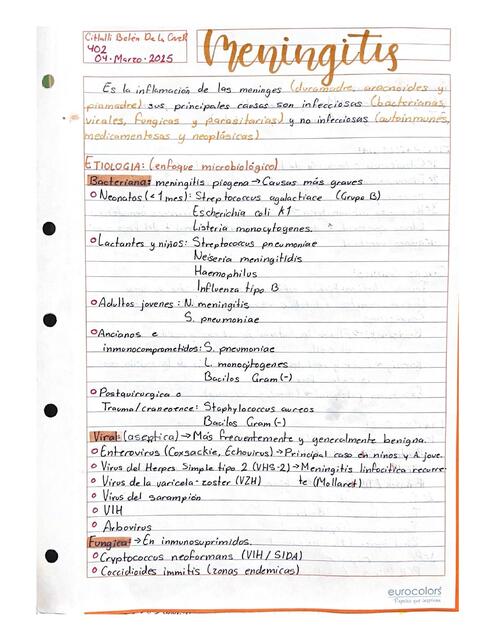 Citlalli Belén De la Cruz R
402
04 · Marzo · 2025
Meningitis
Es la inflamación de las meninges (duramadre, aracnoides y
piamadre) sus principales causas son infecciosas (bacterianas,
virales, fungicas y parasitarias) y no infecciosas (autoinmunes,
medicamentosas y neoplásicas)
ETIOLOGIA: (enfoque microbiológico)
Bacteriana: meningitis piogena → Causas más graves
Neonatos (<1 mes): Streptococcus agalactiace (Grupo B)
Escherichia coli K1
Listeria monocytogenes.
Lactantes y niños: Streptococcus pneumoniae
Neiseria meningitidis
Haemophilus
Influenza tipo B
Adultos jovenes: N. meningitis
S. pneumoniae
Ancianos e
inmonocomprometidos: S. pneumoniae
L. monocytogenes
Bacilos Gram (-)
Postquirurgica o
Trauma/craneoence: Staphylococcus aureos
Bacilos Gram (-)
Viral: (aseptica) → Más frecuentemente y generalmente benigna.
Enterovirus (Coxsackie, Echovirus) → Principal caso en niños y A. jove.
Virus del Herpes Simple tipo 2 (VHS-2) → Meningitis linfocitica recurre
Virus de la varicela-zoster (VZH) te (Mollaret)
Virus del sarampión
VIH
Arbovirus
Fungica: → En inmunosuprimidos.
Cryptococcus neoformans (VIH / SIDA)
Coccidioides immitis (zonas endemicas)
eurocolors